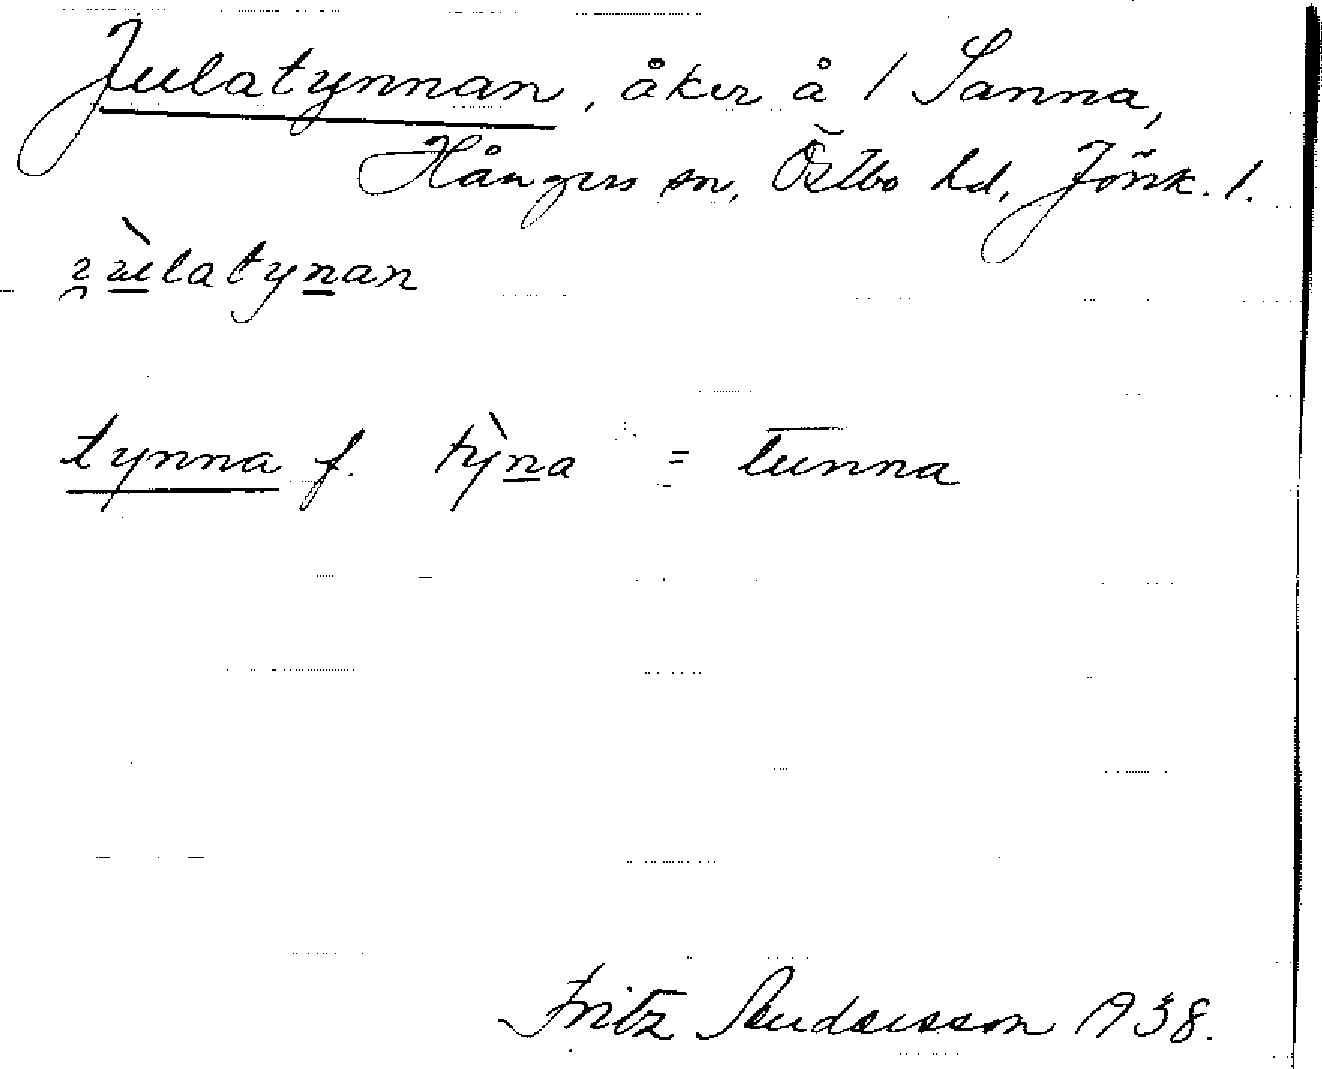 Julatynnan, åker å 1 Sanna,
Hångers sn, Östbo hd, Jönk. l.
jùlatynan
tynna f. tỳna = tunna
Fritz 1938.